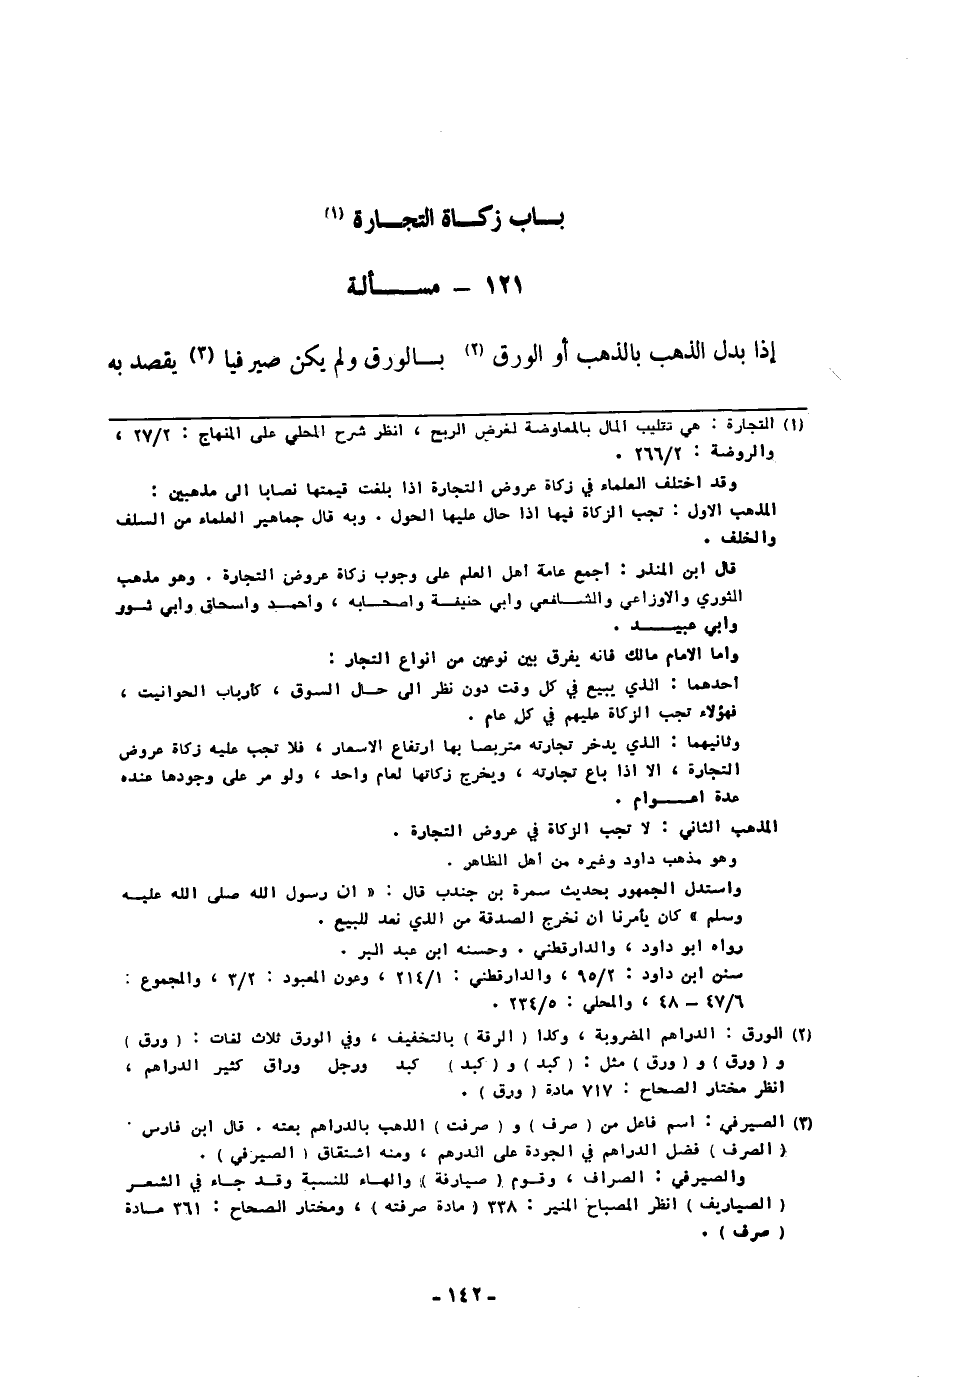 بـــاب زكـــاة التجـــارة (١)
١٢١ ـ مســـــألة
إذا بدل الذهب بالذهب أو الورق (٢) بـــالورق ولم يكن صيرفيا (٣) يقصد به
(١) التجارة : هي تقليب المال بالمعاوضة لغرض الربح ، انظر شرح المحلي على المنهاج : ٢٧/٢ ،
والروضة : ٢٦٦/٢ .
وقد اختلف العلماء في زكاة عروض التجارة اذا بلغت قيمتها نصابا الى مذهبين :
المذهب الاول : تجب الزكاة فيها اذا حال عليها الحول . وبه قال جماهير العلماء من السلف
والخلف .
قال ابن المنذر : أجمع عامة أهل العلم على وجوب زكاة عروض التجارة . وهو مذهب
الثوري والاوزاعي والشـــافعي وابي حنيفـــة واصحـــابه ، وأحمـــد واسحاق وابي ثـــور
وابي عبيـــــد .
واما الامام مالك فانه يفرق بين نوعين من انواع التجار :
أحدهما : الذي يبيع في كل وقت دون نظر الى حـــال السوق ، كأرباب الحوانيت ،
فهؤلاء تجب الزكاة عليهم في كل عام .
وثانيهما : الذي يدخر تجارته متربصا بها ارتفاع الاسعار ، فلا تجب عليه زكاة عروض
التجارة ، الا اذا باع تجارته ، ويخرج زكاتها لعام واحد ، ولو مر على وجودها عنده
عدة اعـــــوام .
المذهب الثاني : لا تجب الزكاة في عروض التجارة .
وهو مذهب داود وغيره من أهل الظاهر .
واستدل الجمهور بحديث سمرة بن جندب قال : « ان رسول الله صلى الله عليـــه
وسلم » كان يأمرنا ان نخرج الصدقة من الذي نعد للبيع .
رواه ابو داود ، والدارقطني . وحسنه ابن عبد البر .
سنن ابن داود : ٩٥/٢ ، والدارقطني : ٢١٤/١ ، وعون المعبود : ٣/٢ ، والمجموع :
٤٧/٦ ــ ٤٨ ، والمحلي : ٢٣٤/٥ .
(٢) الورق : الدراهم المضروبة ، وكذا ( الرقة ) بالتخفيف ، وفي الورق ثلاث لغات : ( ورق )
و ( ورق ) و ( ورق ) مثل : ( كبد ) و ( كبد ) كبد ورجل وراق كثير الدراهم ،
انظر مختار الصحاح : ٧١٧ مادة ( ورق ) .
(٣) الصيرفي : اسم فاعل من ( صرف ) و ( صرفت ) الذهب بالدراهم بعته . قال ابن فارس
( الصرف ) فضل الدراهم في الجودة على الدرهم ، ومنه اشتقاق ( الصيرفي ) .
والصيرفي : الصراف ، وقوم ( صيارفة ) والهاء للنسبة وقد جـــاء في الشعـــر
( الصياريف ) انظر المصباح المنير : ٣٣٨ ( مادة صرفته ) ، ومختار الصحاح : ٣٦١ مـــادة
( صرف ) .
ـ ١٤٢ ـ